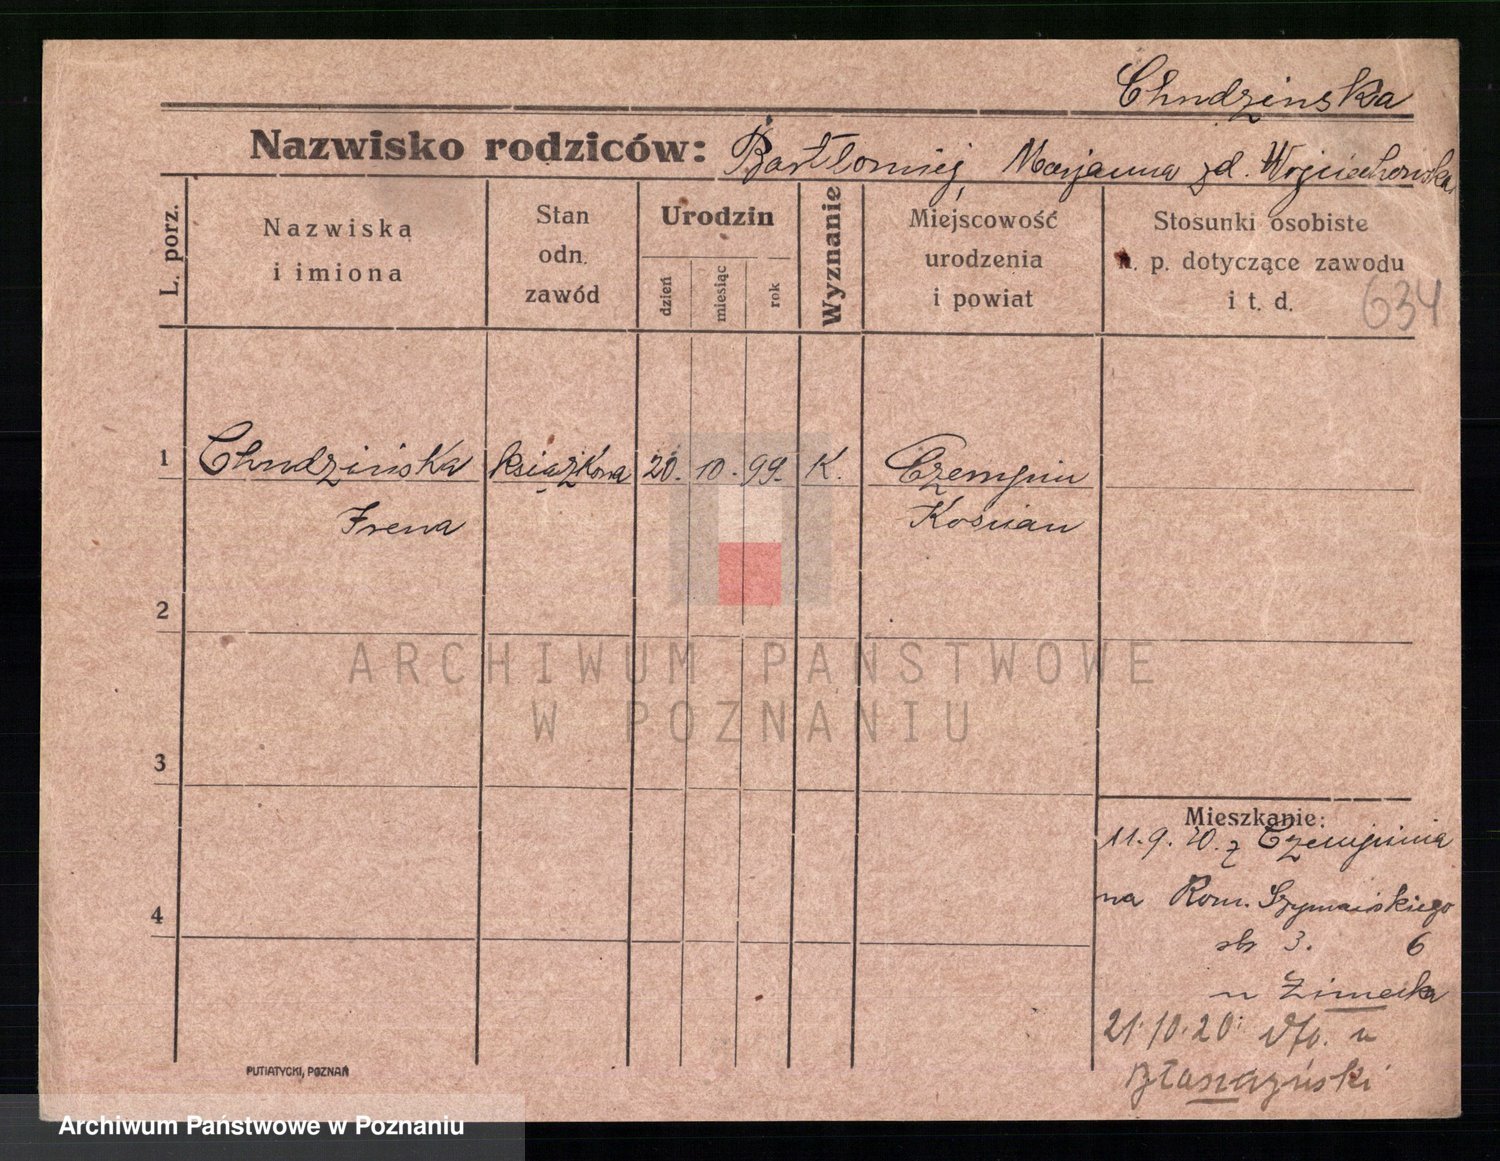 Chudzinska
Nazwisko rodziców: Bartłomiej, Marjanna zd. Wojciechowska
L. porz.
Nazwiska
i imiona
Stan
odn.
zawód
Urodzin
dzień
miesiąc
rok
Wyznanie
Miejscowość
urodzenia
i powiat
Stosunki osobiste
n. p. dotyczące zawodu
i t. d.
634
1 Chudzińska książkowa 20. 10. 99. K. Czempin
Irena Kościan
2
3
4
Mieszkanie:
11.9.20. z Czempinia
na Rom. Szymańskiego
3. 6
u
21.10.20. u
PUTIATYCKI, POZNAŃ
ARCHIWUM PAŃSTWOWE
W POZNANIU
Archiwum Państwowe w Poznaniu